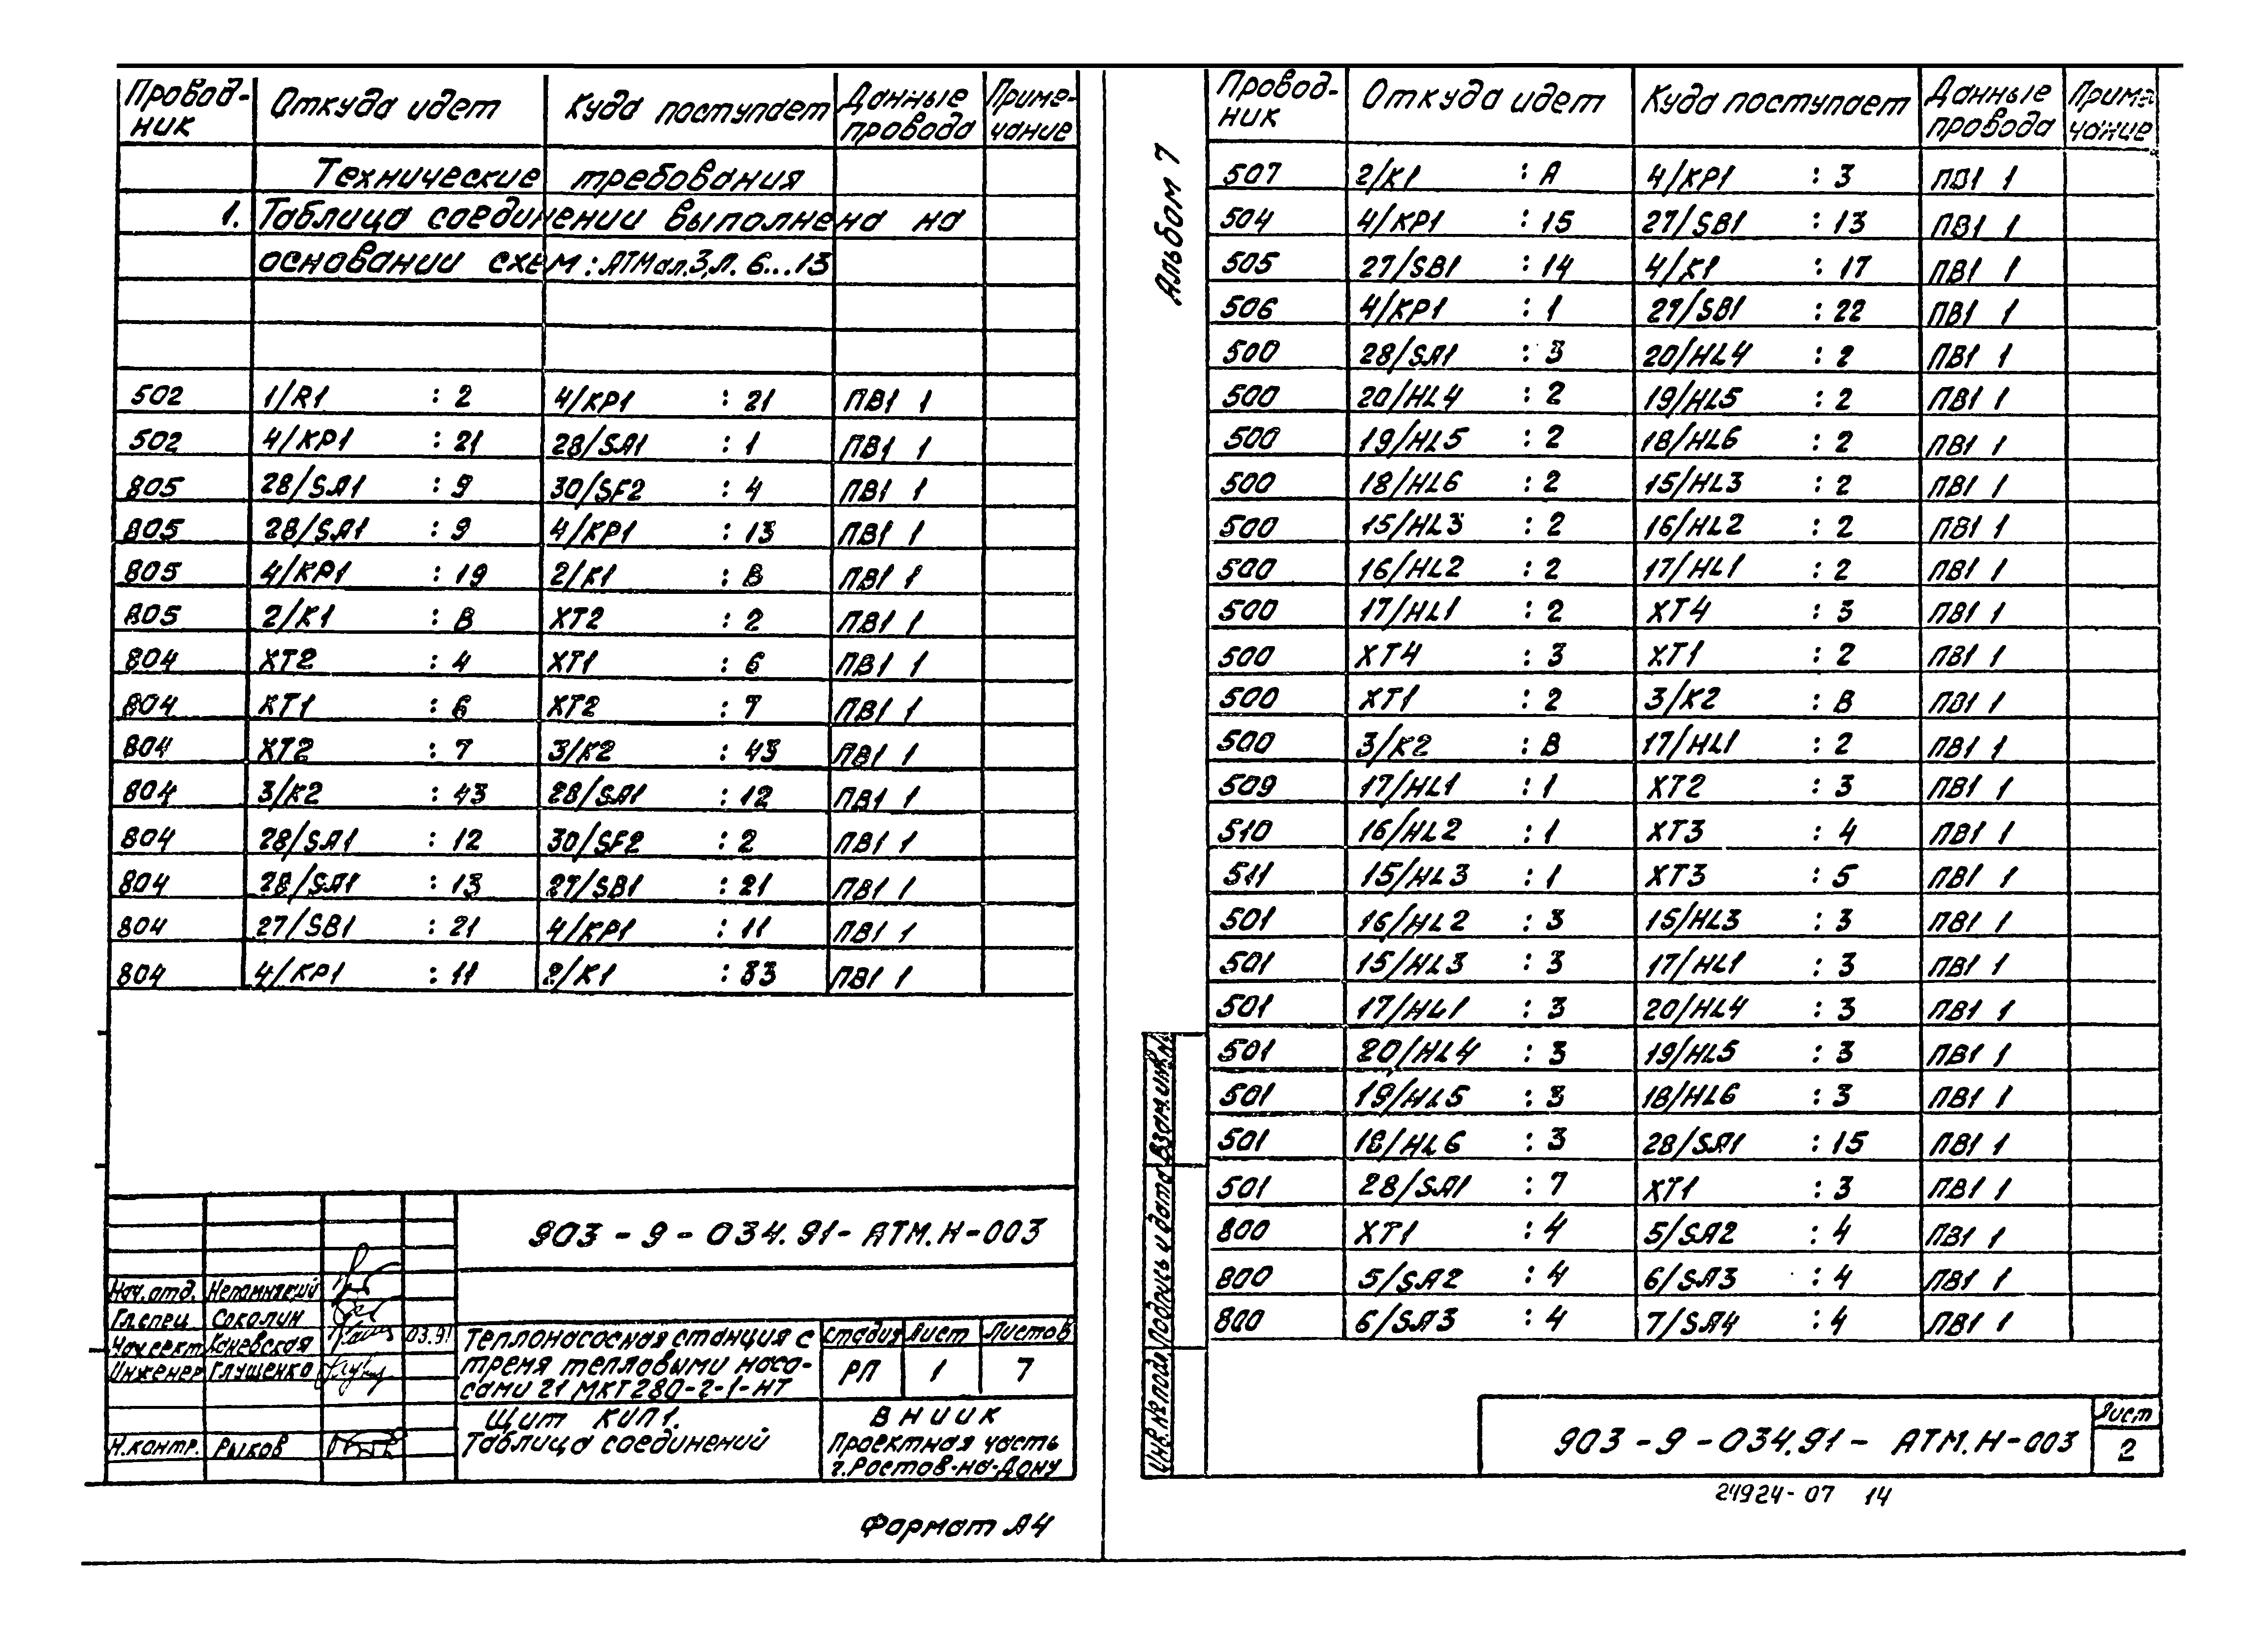 Провод-ник Откуда идет Куда поступает Данные провода Приме-чание
Технические требования
1. Таблица соединении выполнена на
основании схем: АТМ ал.3, Л. 6...13
502 1/R1 : 2 4/KP1 : 21 ПВ1 1
502 4/KP1 : 21 28/SA1 : 1 ПВ1 1
805 28/SA1 : 9 30/SF2 : 4 ПВ1 1
805 28/SA1 : 9 4/KP1 : 13 ПВ1 1
805 4/KP1 : 19 2/K1 : B ПВ1 1
805 2/K1 : B XT2 : 2 ПВ1 1
804 XT2 : 4 XT1 : 6 ПВ1 1
804 XT1 : 6 XT2 : 7 ПВ1 1
804 XT2 : 7 3/K2 : 43 ПВ1 1
804 3/K2 : 43 28/SA1 : 12 ПВ1 1
804 28/SA1 : 12 30/SF2 : 2 ПВ1 1
804 28/SA1 : 13 27/SB1 : 21 ПВ1 1
804 27/SB1 : 21 4/KP1 : 11 ПВ1 1
804 4/KP1 : 11 2/K1 : 33 ПВ1 1
903-9-034.91-АТМ.Н-003
Нач.отд. Непомнящий
Гл.спец Соколин
Нач.сект Каневская 03.91
Инженер Глущенко
Н.контр. Рыков
Теплонасосная станция с
тремя тепловыми насо-
сами 21 МКТ280-2-1-НТ
стадия Лист Листов
РП 1 7
Щит КИП1.
Таблица соединений
ВНИИК
Проектная часть
г.Ростов-на-Дону
Формат А4
Альбом 7
Провод-ник Откуда идет Куда поступает Данные провода Приме-чание
507 2/K1 : A 4/KP1 : 3 ПВ1 1
504 4/KP1 : 15 27/SB1 : 13 ПВ1 1
505 27/SB1 : 14 4/K1 : 17 ПВ1 1
506 4/KP1 : 1 27/SB1 : 22 ПВ1 1
500 28/SA1 : 3 20/HL4 : 2 ПВ1 1
500 20/HL4 : 2 19/HL5 : 2 ПВ1 1
500 19/HL5 : 2 18/HL6 : 2 ПВ1 1
500 18/HL6 : 2 15/HL3 : 2 ПВ1 1
500 15/HL3 : 2 16/HL2 : 2 ПВ1 1
500 16/HL2 : 2 17/HL1 : 2 ПВ1 1
500 17/HL1 : 2 XT4 : 3 ПВ1 1
500 XT4 : 3 XT1 : 2 ПВ1 1
500 XT1 : 2 3/K2 : B ПВ1 1
500 3/K2 : B 17/HL1 : 2 ПВ1 1
509 17/HL1 : 1 XT2 : 3 ПВ1 1
510 16/HL2 : 1 XT3 : 4 ПВ1 1
511 15/HL3 : 1 XT3 : 5 ПВ1 1
501 16/HL2 : 3 15/HL3 : 3 ПВ1 1
501 15/HL3 : 3 17/HL1 : 3 ПВ1 1
501 17/HL1 : 3 20/HL4 : 3 ПВ1 1
501 20/HL4 : 3 19/HL5 : 3 ПВ1 1
501 19/HL5 : 3 18/HL6 : 3 ПВ1 1
501 18/HL6 : 3 28/SA1 : 15 ПВ1 1
501 28/SA1 : 7 XT1 : 3 ПВ1 1
800 XT1 : 4 5/SA2 : 4 ПВ1 1
800 5/SA2 : 4 6/SA3 : 4 ПВ1 1
800 6/SA3 : 4 7/SA4 : 4 ПВ1 1
Инв.№ подл. Подпись и дата Взам.инв.№
903-9-034.91- АТМ.Н-003
Лист
2
24924-07 14